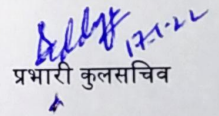 17-1-22
प्रभारी कुलसचिव